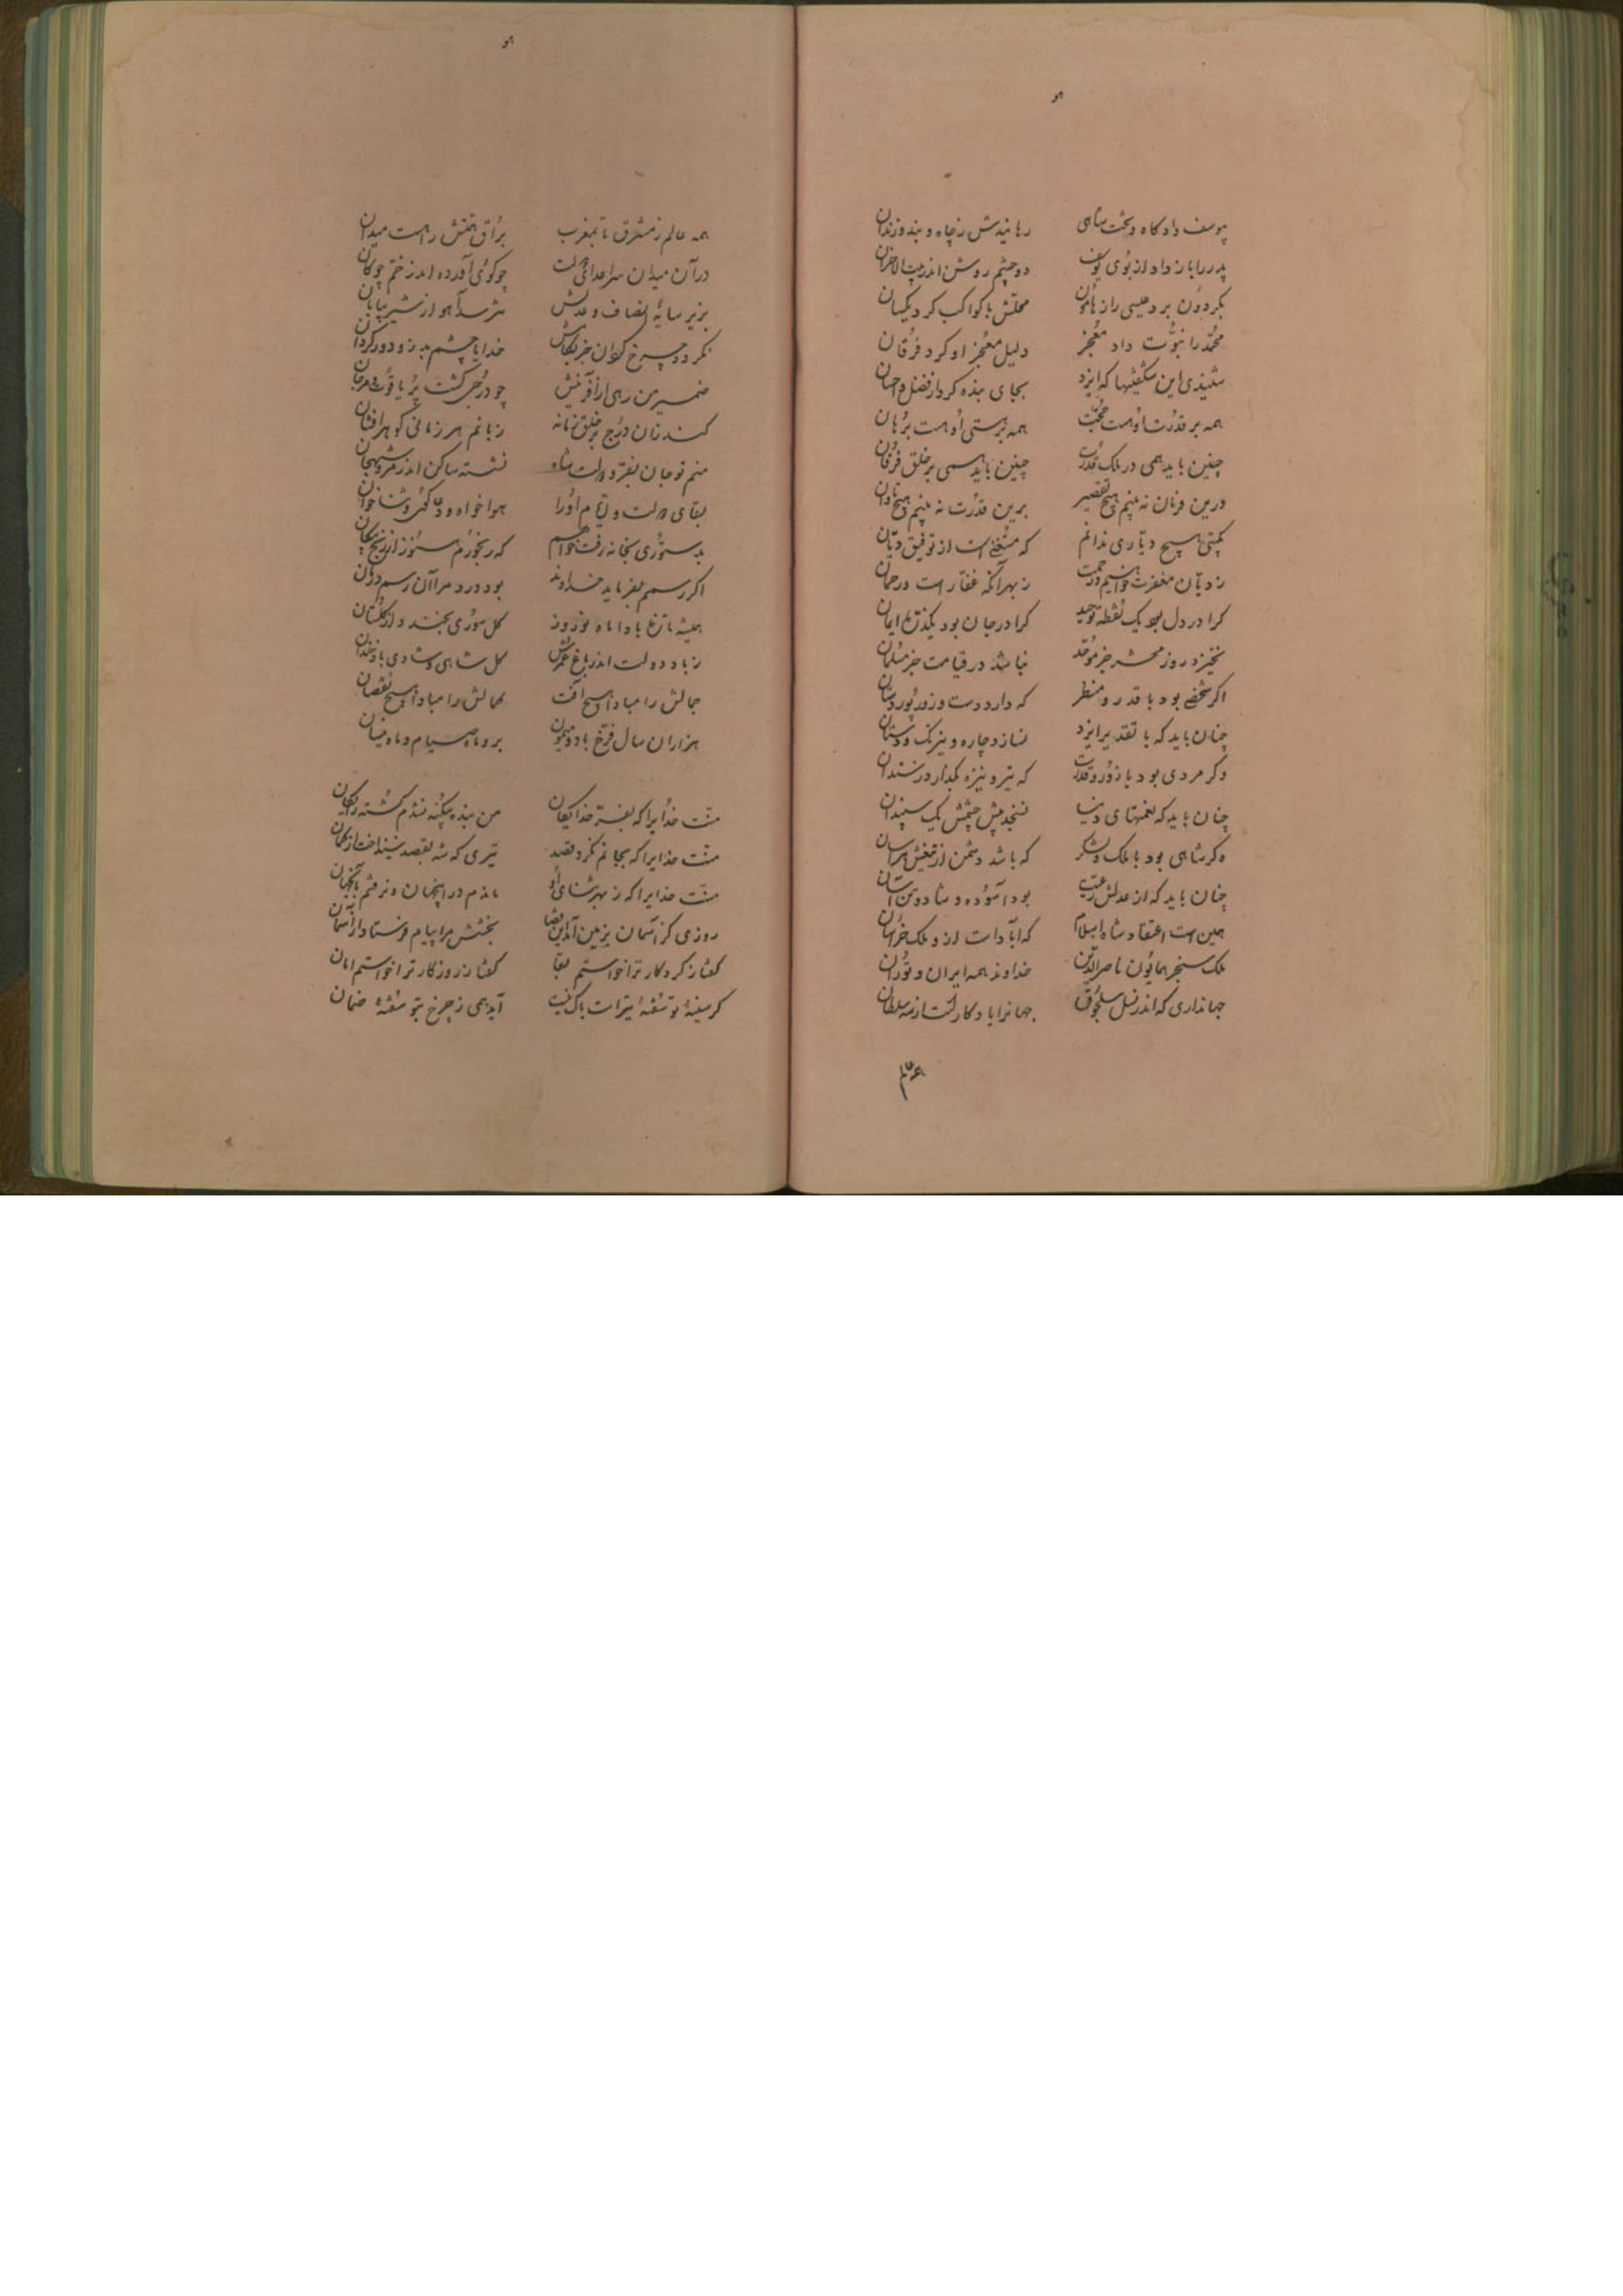 هو
بیوسف داد گاه و تخت شاهی رهانیدش ز چاه و بند و زندان
پدر را باز داد از بوی یوسف دو چشم روشن اندر بیت الاحزان
بگردون برد عیسی را ز هامون محلش با کواکب کرد یکسان
محمد را نبوت داد معجز دلیل معجز او کرد فرقان
شنیدی این شگفتیها که ایزد بجای بنده کرد از فضل و احسان
همه بر قدرت او هست حجت همه بر هستی او هست برهان
چنین باید همی در ملک قدرت چنین باید همی بر خلق فرمان
درین فرمان نه بینم هیچ تقصیر برین قدرت نه بینم هیچ تاوان
بگیتی هیچ دیاری ندانم که مستغنی است از توفیق دیان
ز دیان مغفرت خواهیم و رحمت ز بهر آنکه غفار است و رحمان
کرا در دل بود یک نقطه توحید کرا در جان بود یک ذره ایمان
نخیزد روز محشر جز موحد نباشد در قیامت جز مسلمان
اگر شخصی بود با قدر و منظر که دارد دست و زور پور دستان
چنان باید که با تقدیر ایزد نسازد چاره و نیرنگ و دستان
وگر مردی بود با زور و قدرت که تیر و نیزه بگذارد ز سندان
چنان باید که نعمتهای دنیا نسنجد پیش چشمش یک سپندان
وگر شاهی بود با ملک و لشکر که باشد دشمن از تیغش هراسان
چنان باید که از عدلش رعیت بود آسوده و شاد و تن آسان
همین است اعتقاد شاه اسلام که آباد است ازو ملک خراسان
ملک سنجر همایون ناصر الدین خداوند همه ایران و توران
جهانداری که اندر نسل سلجوق جهانرا یادگار است از سه سلطان
هو
همه عالم ز مشرق تا بمغرب براق همتش را هست میدان
در آن میدان سر اعدای دولت چو گوئی آورده اندر زخم چوگان
بزیر سایه انصاف و عدلش نترسد آهو از شیر بیابان
نگردد چرخ گردان جز بکامش خدایا چشم بد زو دور گردان
ضمیر من رهی از آفرینش چو درجی گشت پر یاقوت و مرجان
کند زان درج بر خلق زمانه زبانم هر زمانی گوهر افشان
منم نو جان بفر دولت شاه نشسته ساکن اندر مرو شهجان
بقای دولت و ایام او را هواخواه و دعا گوی و ثناخوان
بدستوری بخانه رفت خواهم که رنجورم هنوز از رنج پیکان
اگر رسمم بفرماید خداوند بود درد مرا آن رسم درمان
همیشه تا بباغ و ماه نوروز گل سوری بخندد از گلستان
ز باد دولت اندر باغ عمرش گل شاهی و شادی باد خندان
جمالش را مباد هیچ آفت کمالش را مبادا هیچ نقصان
هزاران سال فرخ باد و میمون برو ماه صیام و ماه نیسان
منت خدایرا که بفر خدایگان من بنده بیگنه نشدم کشته رایگان
منت خدایرا که بجانم نکرد قصد تیری که شه بقصد نینداخت از کمان
منت خدایرا که ز بهر ثنای او ماندم درین جهان و نرفتم بآن جهان
روزی کز آسمان بزمین آمد این قضا بختش مرا پیام فرستاد از آسمان
گفتا ز کردگار ترا خواستم بقا گفتا ز روزگار ترا خواستم امان
گر سینه تو شفته تیر است باک نیست آید همی ز چرخ بتو شفته ضمان